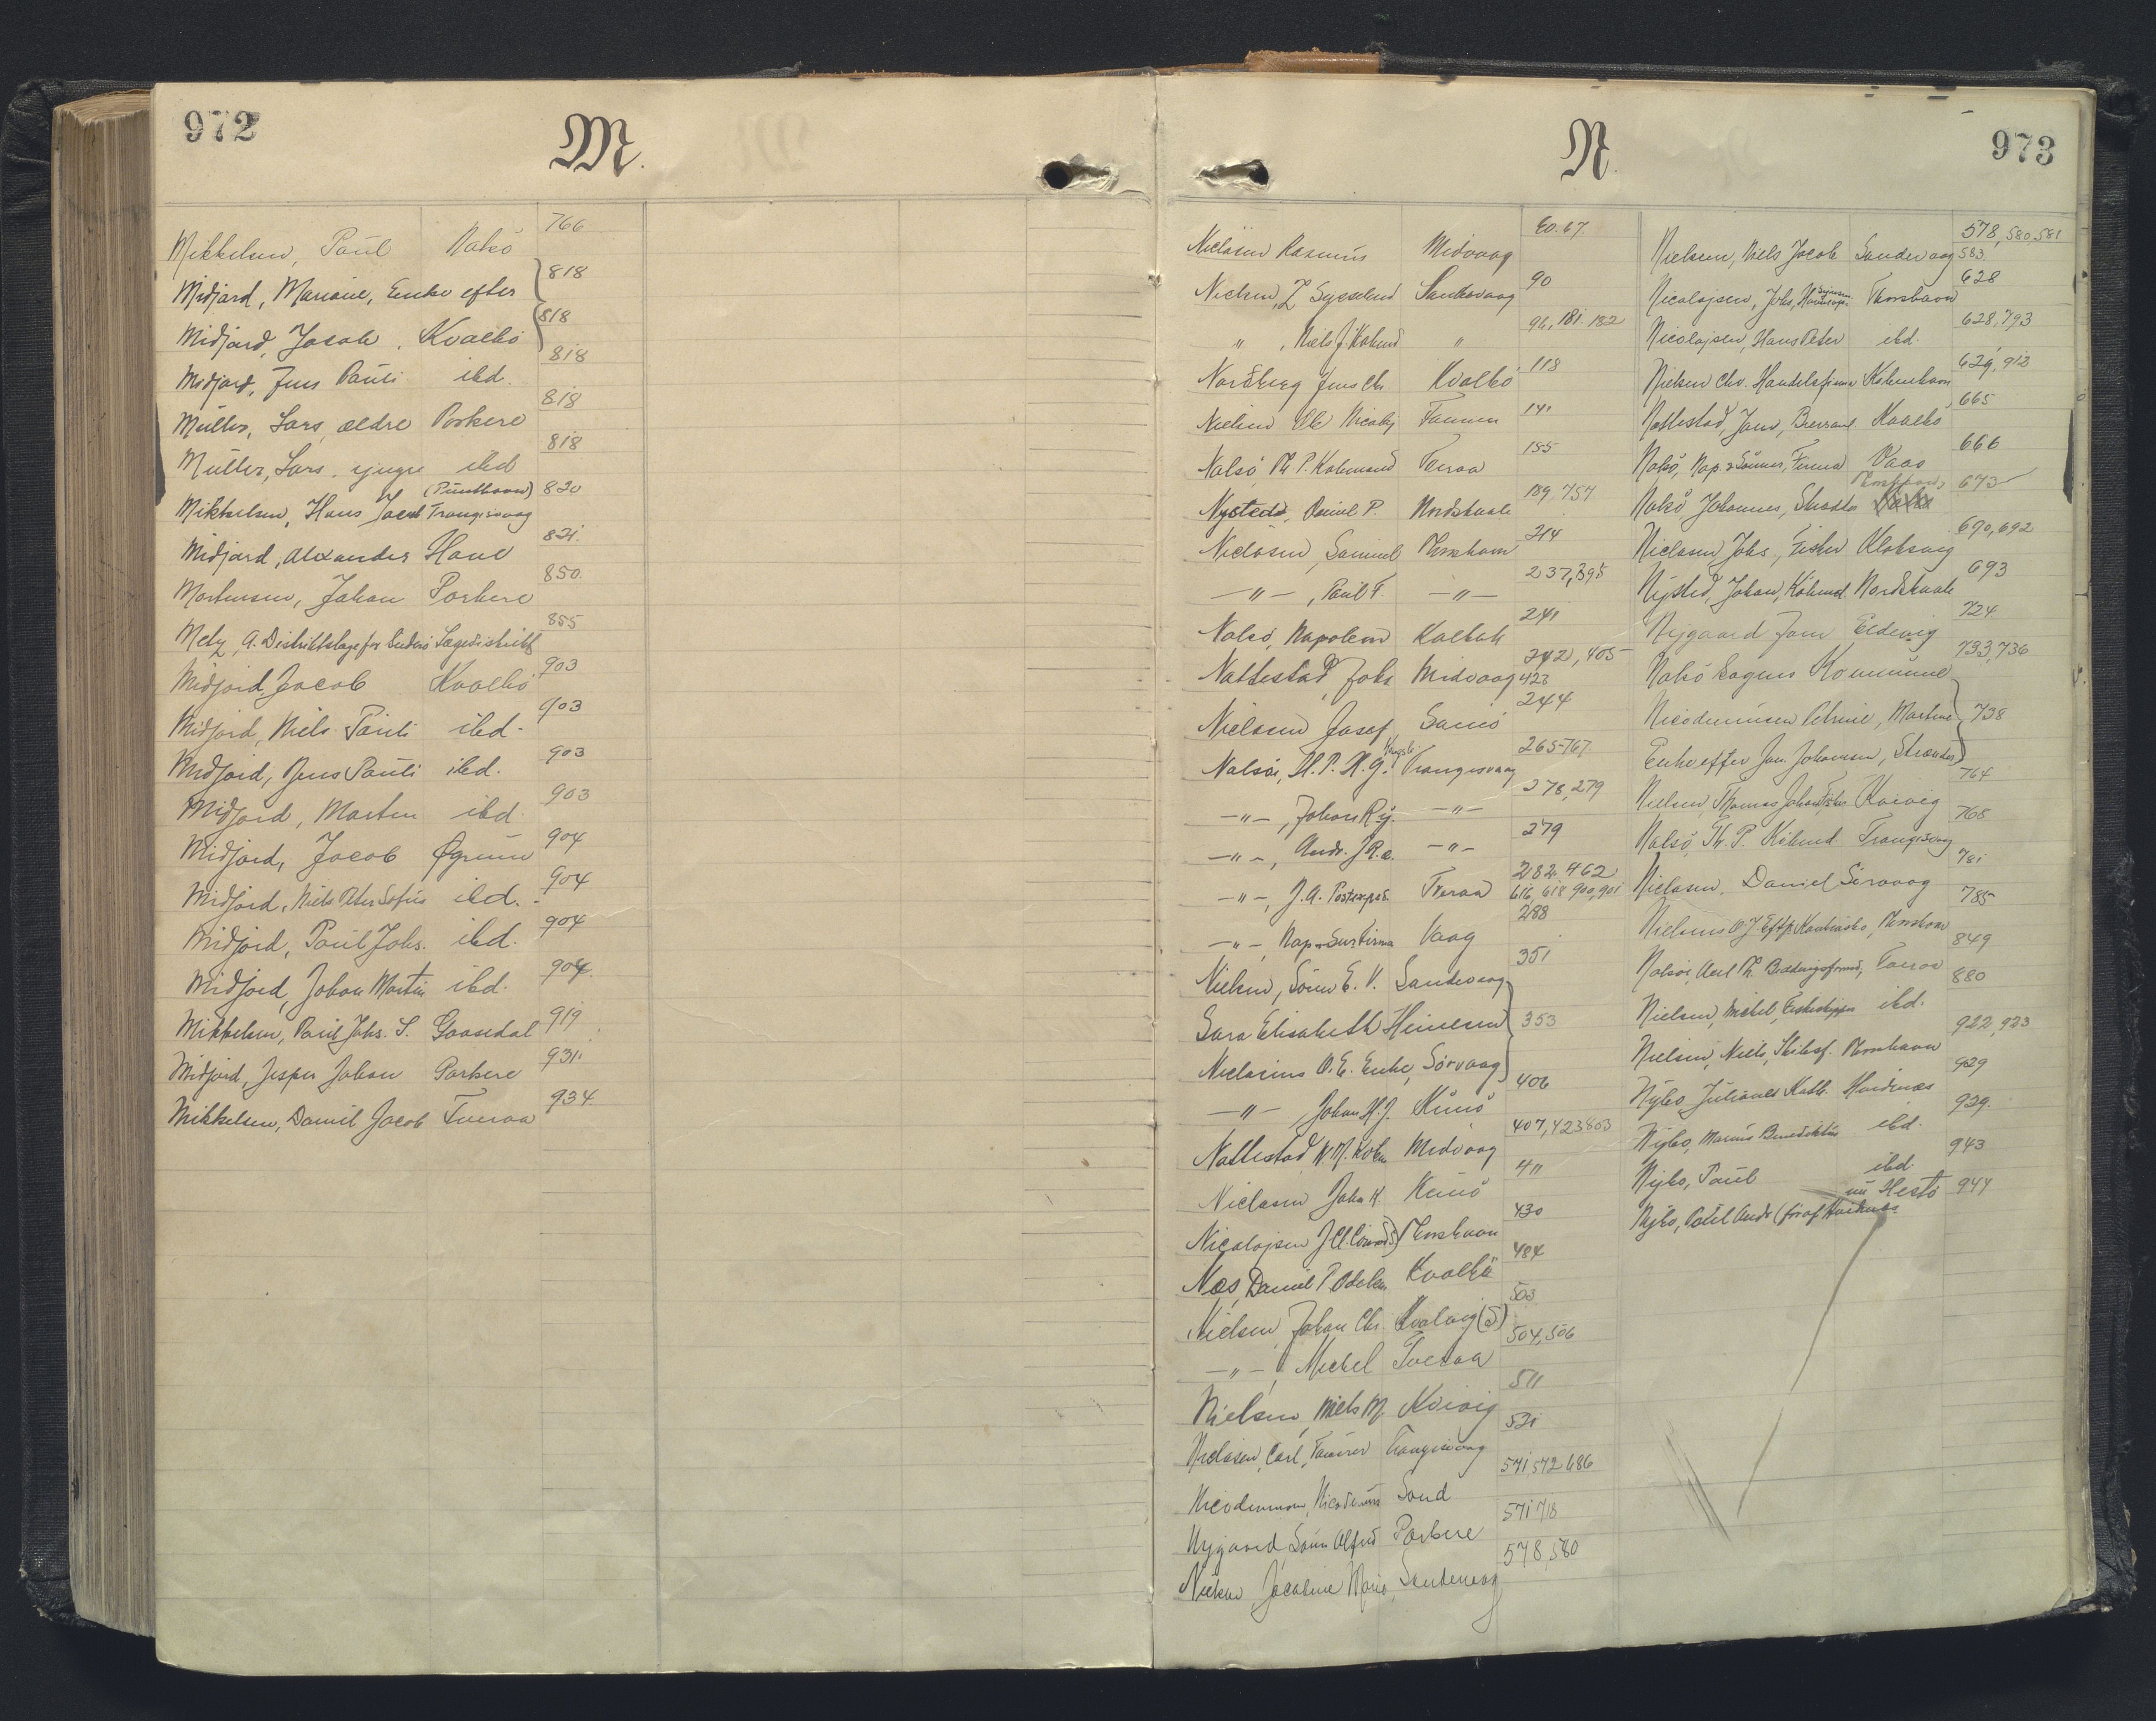 972
M.
Mikkelsen, Paul Nolsö 766
Midjord, Mariane, Enke efter 818
Midjord, Jacob, Kvalbö 818
Midjord, Jens Pauli ibd. 818
Müller, Lars, ældre Porkere 818
Müller, Lars, yngre ibd 818
Mikkelsen, Hans Jacob Trangisvaag 820
Midjord, Alexander Hove 821.
Mortensen, Johan Porkere 850.
Metz, A. Distriktslæge for Suderö Lægedistrikt 855
Midjord, Jacob Kvalbö 903
Midjord, Niels Pauli ibd. 903
Midjord, Jens Pauli ibd. 903
Midjord, Morten ibd. 903
Midjord, Jacob Øgrum 904
Midjord, Niels Peter Sofus ibd. 904
Midjord, Paul Johs. ibd. 904
Midjord, Johan Martin ibd. 904
Mikkelsen, Paul Johs. S. Gaasedal 919
Midjord, Jesper Johan Porkere 931.
Mikkelsen, Daniel Jacob Tveraa 934.
973
N.
Niclasen Rasmus Midvaag 60.67.
Nielsen, Z Sysselmd Sandevaag 90
" , Niels J. Kobmd " 96, 181. 182
Nordberg Jens Chr. Kvalbö 118
Nielsen Ole Nicolaj Famien 141
Nolsö Th P. Kobmand Tveraa 185
Nysted, Daniel P. Nordskaale 189. 757.
Niclasen, Samuel Thorshavn 214
—"—, Paul F. —"— 237, 395
Nolsö, Napoleon Kalbak 241
Nattestad Johs Midvaag 242, 405 423
Niclasen Josef Sumö 244
Nolsöe, H. P. H. G. Trangisvaag 265-767.
—"—, Johan Rej. —"— 278, 279
—"—, Andr. J —"— 279
—"—, J. A. Postexped. Tveraa 282 462 616, 618 900, 901
—"—, Nap & Sön Firma Vaag 288
Nielsen, Sönne E. V. Sandevaag 351
Sara Elisabeth Heinesen 353
Niclasens O. E. Enke, Sörvaag
—"—, Johan H. J. Kunö 406
Nattestad N. M. Kobm Midvaag 407, 423 803
Niclasen John K. Kunö 411
Nicolajsen J. Cl. Thorshavn 430
Næs, Daniel P. Kvalbö 484
Nielsen, Johan Chr. Kvalvig (S) 503
—"—, Michel Tveraa 504, 506
Nielsen, Niels M. Kvivig 511
Niclasen, Carl, Trangisvaag 531
Nicodemusen, Nicodemus Sand 571, 572 686
Nygaard, Sönne Alfred Porkere 571 718
Nielsen, Jacobine Marie, Sandevaag 578, 580
Nielsen, Niels Jacob Sandevaag 578, 580, 581 583.
Nicolajsen, Johs, Thorshavn 628
Nicolajsen, Hans Peter ibd. 628, 793
Nielsen Chr. Handelsfirma Köbenhavn 629, 912
Nattestad, Jens, Kvalbö 665
Nolsö, Nap & Sönner, Firma Vaag 666
Nolsö Johannes, Thorshavn 673
Niclasen Johs, Fisker Klaksvig 690, 692
Nysted, Johan, Köbmd. Nordskaale 693
Nygaard Eldevig 724
Nolsö Sogns Kommune 733, 736
Nicodemusen Petrine, Martine 738
Enke efter Jens Johansen, Strænder
Nielsen, Thomas Johan Kvivig 764
Nolsö, Th. P. Köbmd Trangisvaag 765
Niclasen, Daniel Sörvaag 781
Nielsens O. J. Eftf. Thorshavn 785
Nolsöe, Axel Th. Tveraa 849
Nielsen, Michel, Fiskeskipper ibd. 880
Nielsen, Niels, Thorshavn 922, 923
Nybo Juliane Kath. Hvidenæs 929
Nybo, Marius Benediktus ibd. 929.
Nybo, Paul ibd. 943
Nybo, Poul Andr (för af Hvidenæs nu Hestö 944